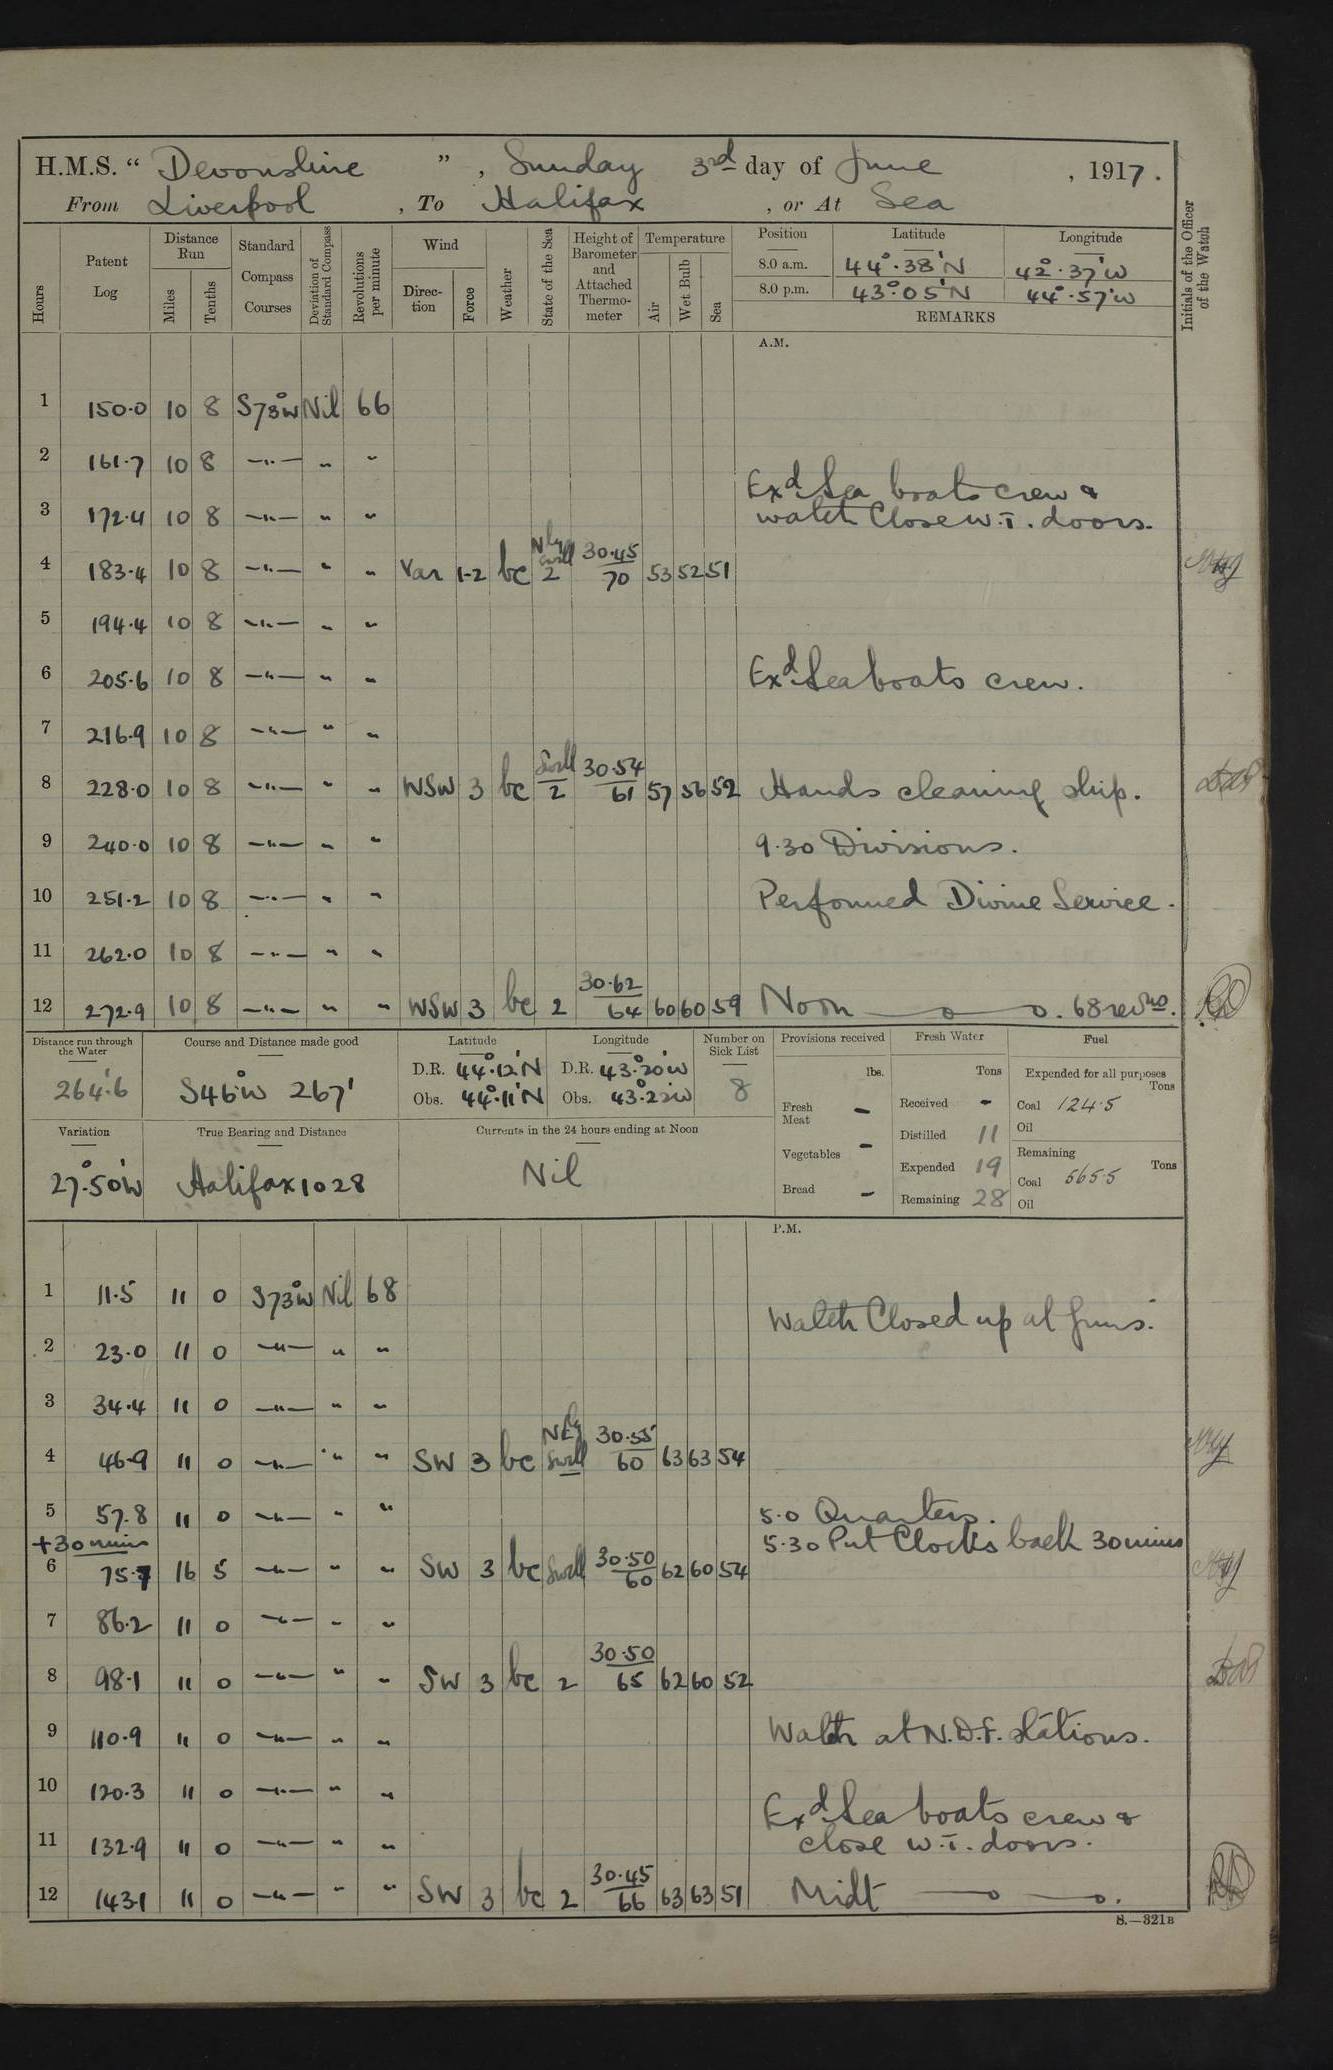 H.M.S. " Devonshire ", Sunday 3rd day of June, 1917.
From Liverpool, To Halifax, or At Sea
Hours
Patent Log
Distance Run
Miles
Tenths
Standard Compass Courses
Deviation of Standard Compass
Revolutions per minute
Wind
Direction
Force
Weather
State of the Sea
Height of Barometer and Attached Thermometer
Temperature
Air
Wet Bulb
Sea
Position Latitude Longitude
8.0 a.m. 44°.38'N 42°.37'W
8.0 p.m. 43°.05'N 44°.57'W
REMARKS
Initials of the Officer of the Watch
A.M.
1 150.0 10 8 S73°W Nil 66
2 161.7 10 8 —"— " "
Exd Sea boats crew &
3 172.4 10 8 —"— " " watch Close W.T. doors.
4 183.4 10 8 —"— " " Var 1-2 bc Nly Swell 2 30.45 70 53 52 51
5 194.4 10 8 —"— " "
6 205.6 10 8 —"— " " Exd Sea boats crew.
7 216.9 10 8 —"— " "
8 228.0 10 8 —"— " " WSW 3 bc Swell 2 30.54 61 57 56 52 Hands cleaning ship.
9 240.0 10 8 —"— " " 9.30 Divisions.
10 251.2 10 8 —"— " " Performed Divine Service.
11 262.0 10 8 —"— " "
12 272.9 10 8 —"— " " WSW 3 bc 2 30.62 64 60 60 59 Noon 68 revns.
Distance run through the Water
264.6
Course and Distance made good
S46°W 267'
Latitude
D.R. 44°.12'N
Obs. 44°.11'N
Longitude
D.R. 43°.20'W
Obs. 43°.22'W
Number on Sick List
8
Provisions received
lbs.
Fresh Meat -
Vegetables -
Bread -
Fresh Water
Tons
Received -
Distilled 11
Expended 19
Remaining 28
Fuel
Expended for all purposes
Tons
Coal 124.5
Oil
Remaining
Tons
Coal 565.5
Oil
Variation
27°.50'W
True Bearing and Distance
Halifax 1028
Currents in the 24 hours ending at Noon
Nil
P.M.
1 11.5 11 0 S73°W Nil 68
Watch Closed up at guns.
2 23.0 11 0 —"— " "
3 34.4 11 0 —"— " "
4 46.9 11 0 —"— " " SW 3 bc NEly Swell 30.55 60 63 63 54
5 57.8 11 0 —"— " " 5.0 Quarters.
+30 mins 5.30 Put Clocks back 30 mins
6 75.7 16 5 —"— " " SW 3 bc Swell 30.50 60 62 60 54
7 86.2 11 0 —"— " "
8 98.1 11 0 —"— " " SW 3 bc 2 30.50 65 62 60 52
9 110.9 11 0 —"— " " Watch at N.D.F. stations.
10 120.3 11 0 —"— " "
Exd Sea boats crew &
11 132.9 11 0 —"— " " close W.T. doors.
12 143.1 11 0 —"— " " SW 3 bc 2 30.45 66 63 63 51 Midt
S.—321B